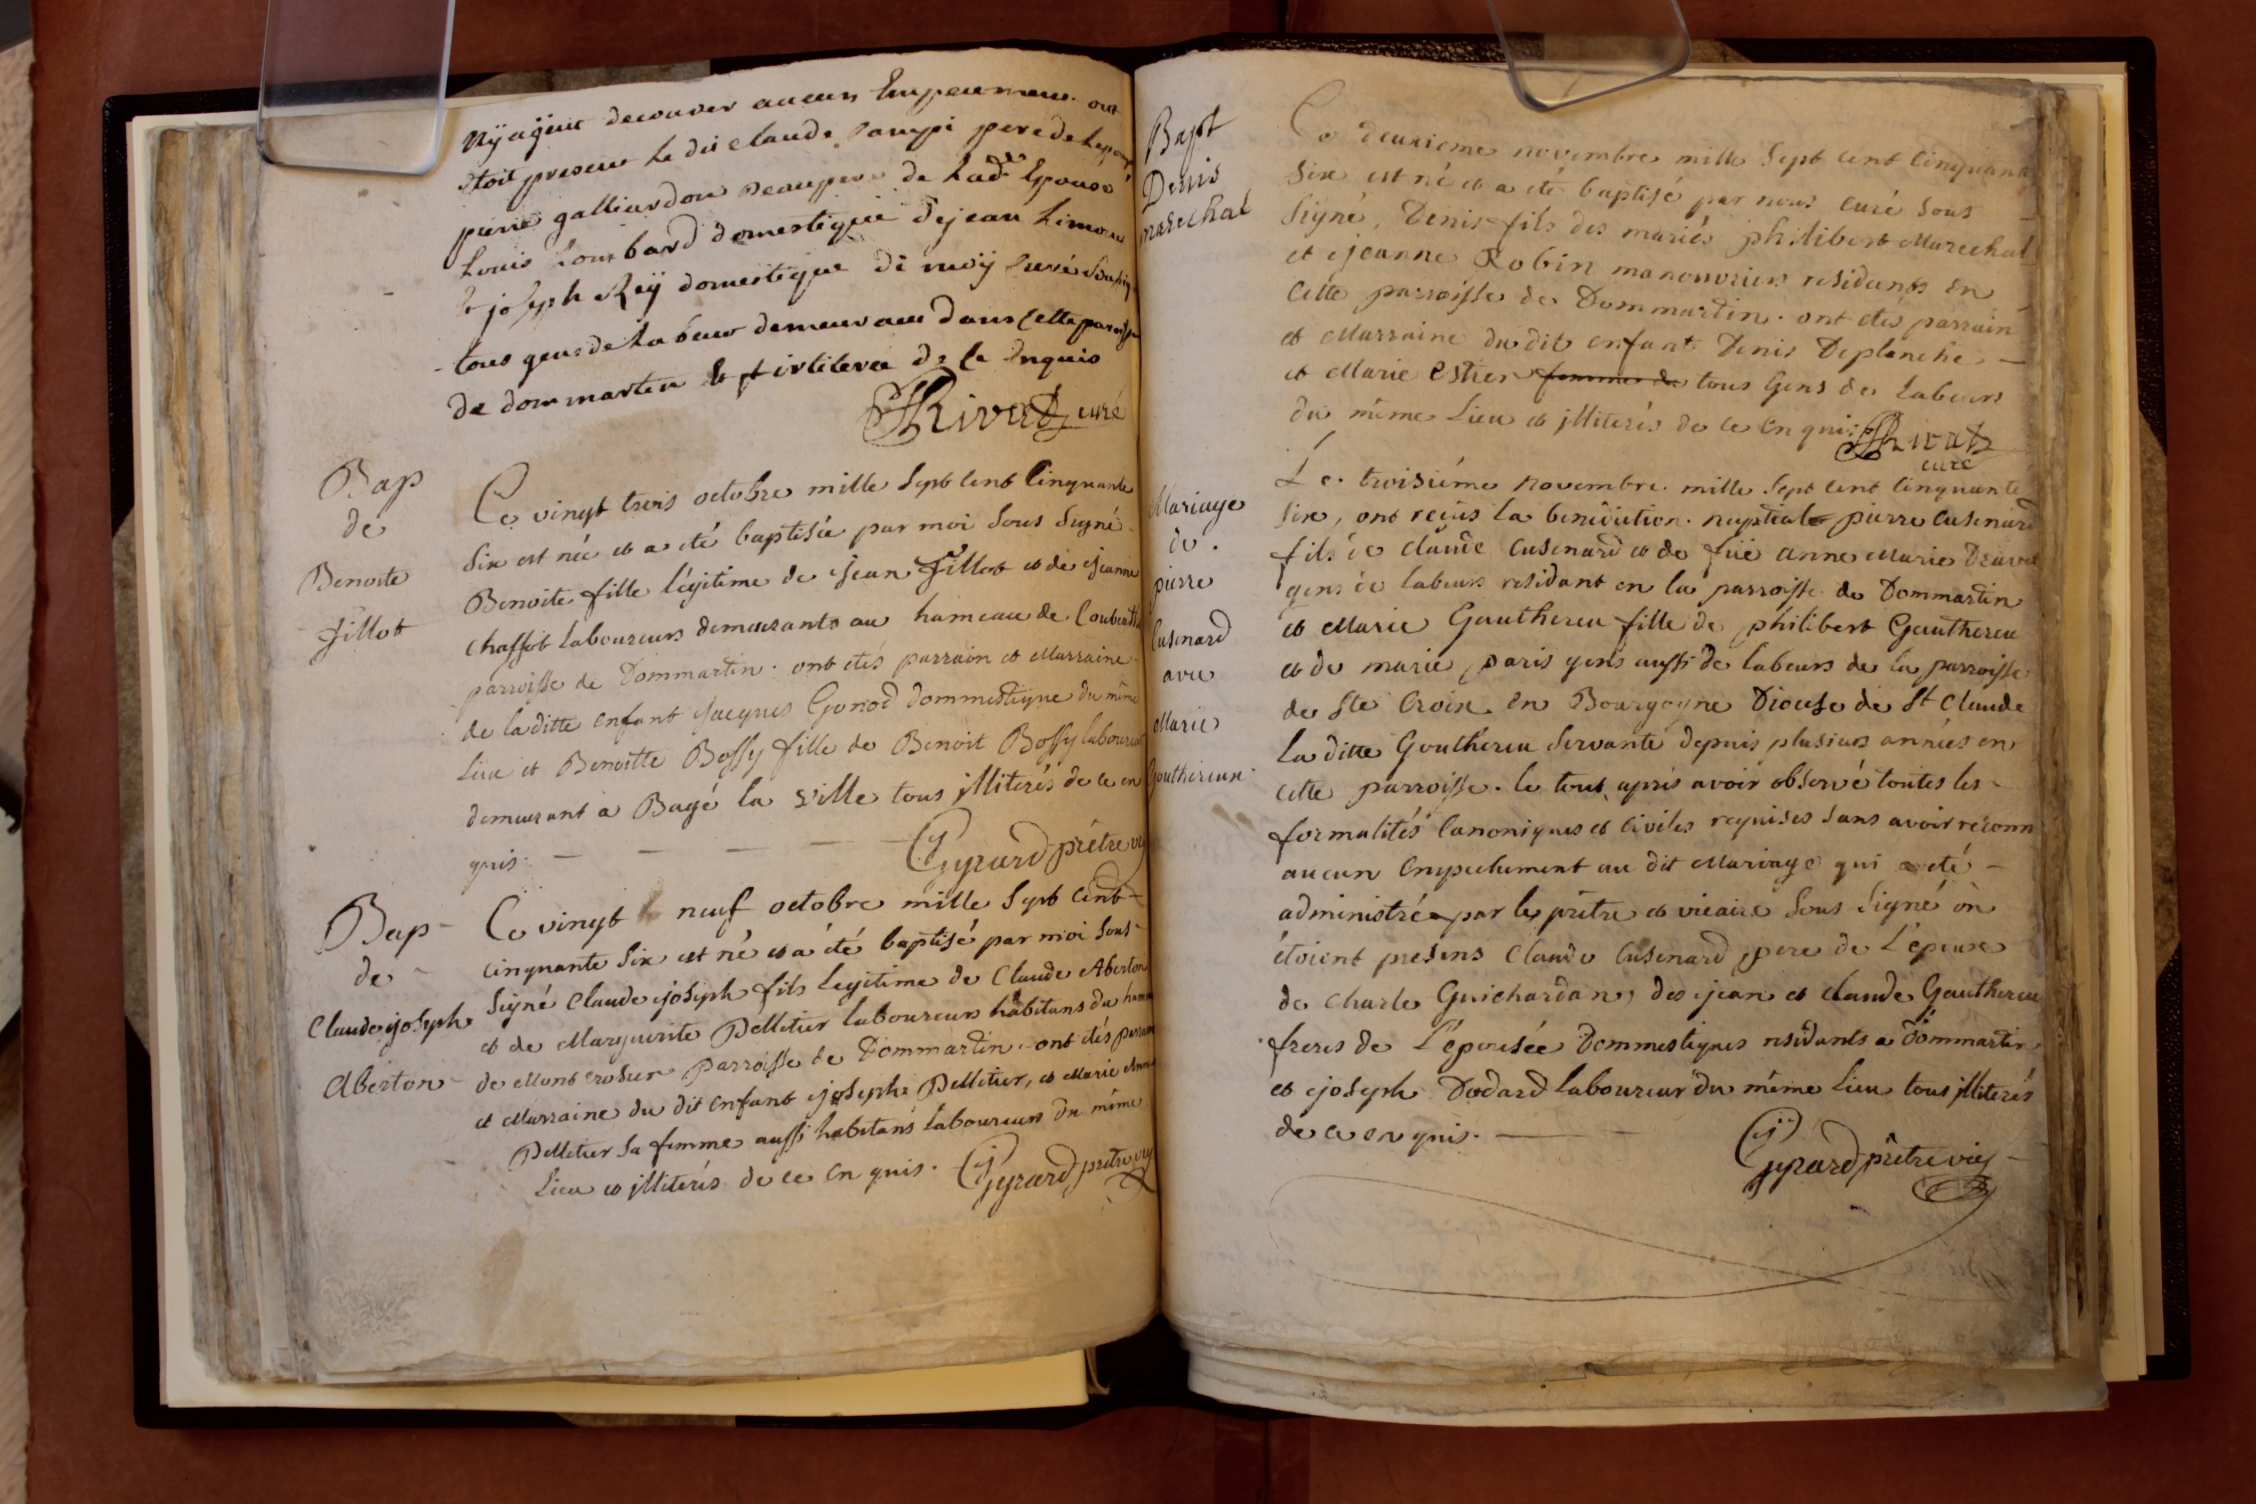 Nÿ aÿeut decouver aucun Empecemens. out
etoit presens le dit claude pere de lepouse
pierre galliardon Beaupere de Lad.e Epouse
Louis Lombard domestique de jean Limon
et joseph Reÿ domestique de moÿ curé sousig
tous gens de labeur demeurans dans cette paroisse
de dommartin et illiteres de ce Enquis
Rivat curé
Bap
de
Benoite
fillot
Ce vingt trois octobre mille Sept Cent Cinquante
Six est née et a eté baptisée par moi Sous Signé
Benoite fille légitime de jean fillot et de jeanne
Chaffot laboureurs demeurants au hameau de Couberth
parroisse de Dommartin. ont etés parrain et Marraine
de la ditte enfant jacques Gonod dommestique du même
Lieu et Benoitte Bossy fille de Benoit Bossy laboureur
demeurant a Bagé la ville tous illiterés de ce en
quis.
Gyrard prêtre vic
Bap
de
Claude joseph
Aberton
Ce vingt neuf octobre mille Sept Cent
cinquante Six est né et a été baptisé par moi Sous
Signé Claude joseph fils Legitime de Claude Aberton
et de Marguerite Pelletier laboureurs habitans du hameau
de Mont crosier Parroisse de Dommartin. ont etés parrain
et Marraine du dit enfant joseph Pelletier, et Marie Anne
Pelletier Sa femme aussi habitans laboureurs du même
Lieu et illiterés de ce en quis. Gyrard prêtre vic
Bapt
Denis
marechal
Ce deuxieme novembre mille Sept cent Cinquante
Six est né et a eté baptisé par nous Curé Sous
Signé, Denis fils des mariés philibert Marechal
et jeanne Robin manouvriers residants en
cette parroisse de Dommartin. ont etés parrain
et Marraine du dit enfant Denis Deplanche
et Marie Estier femme de tous Gens de Labeurs
du même Lieu et illiterés de ce en quis. Rivat
curé
Mariage
de
pierre
Cusinard
avec
Marie
Gouthereux
Le. troisiéme Novembre mille Sept Cent Cinquante
Six, ont reçus la benédiction nuptiale pierre Cusinard
fils de claude Cusinard et de fuë Anne Marie
gens de labeurs residant en la parroisse de Dommartin
et Marie Gauthereu fille de philibert Gauthereu
et de marie paris gens aussi de labeurs de la parroisse
de Ste Croix en Bourgogne Diocese de St Claude
la ditte Gouthereu Servante depuis plusieurs années en
cette parroisse. le tout apris avoir observé toutes les
formalités Canoniques et Civiles requises Sans avoir reconn
aucun Empechement au dit Mariage qui a eté
administré par le prêtre et vicaire Sous Signé où
étoient presens Claude Cusinard pere de L'épouse
de Charle Guichardan, de jean et claude Gauthereu
freres de L'épousée Dommestiques residants a Dommartin
et joseph Dodard laboureur du même Lieu tous illiterés
de ce en quis.
Gyrard prêtre vic